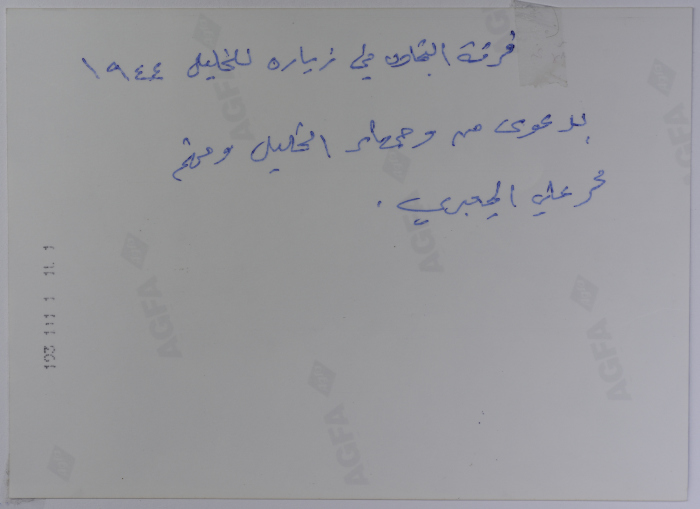 فرقة التجاوب في زياره للخليل ١٩٤٤
بدعوى من وجهاء الخليل ومنهم
محمد علي الجعبري .
AGFA
AGFA
AGFA
AGFA
AGFA
AGFA
AGFA